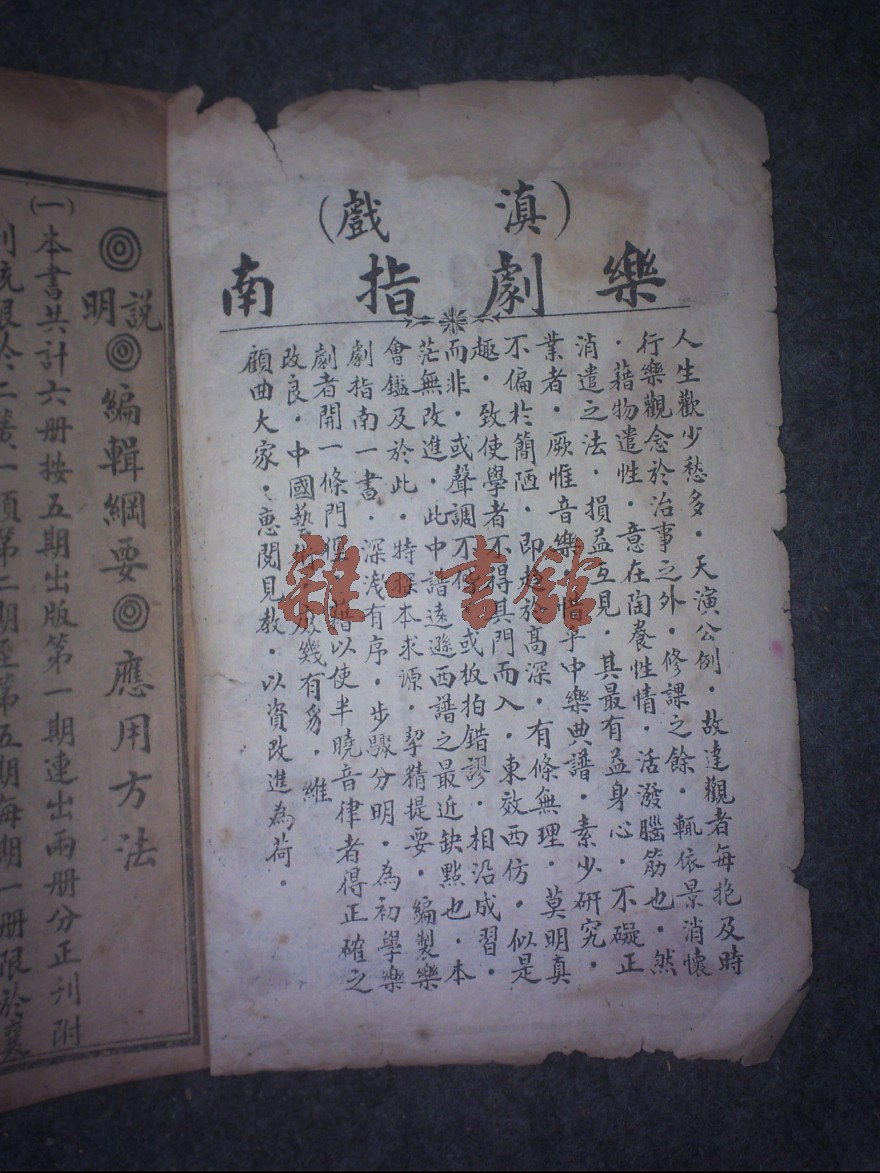 （滇戲）
樂劇指南
人生歡少愁多．天演公例．故達觀者每抱及時
行樂觀念於治事之外．修課之餘．輒依景消懷
．藉物遣性．意在陶養性情．活潑腦筋也．然
消遣之法．損益互見．其最有益身心．不礙正
業者．厥惟音樂．惜乎中樂典譜．素少研究．
不偏於簡陋．即趨於高深．有條無理．莫明真
趣．致使學者不得其門而入．東效西仿．似是
而非．或聲調不 或板拍錯謬．相沿成習．
茫無改進．此中譜遠遜西譜之最近缺點也．本
會鑑及於此．特探本求源．挈精提要．編製樂
劇指南一書．深淺有序．步驟分明．為初學樂
劇者開一條門徑．藉以使半曉音律者得正確之
改良．中國藝術．庶幾有豸．維
顧曲大家．惠閱見教．以資改進為荷．
雜·書館
◎說明◎編輯綱要◎應用方法
（一）本書共計六册按五期出版第一期連出兩册分正刊附
第二期至第五期每期一册限於襄